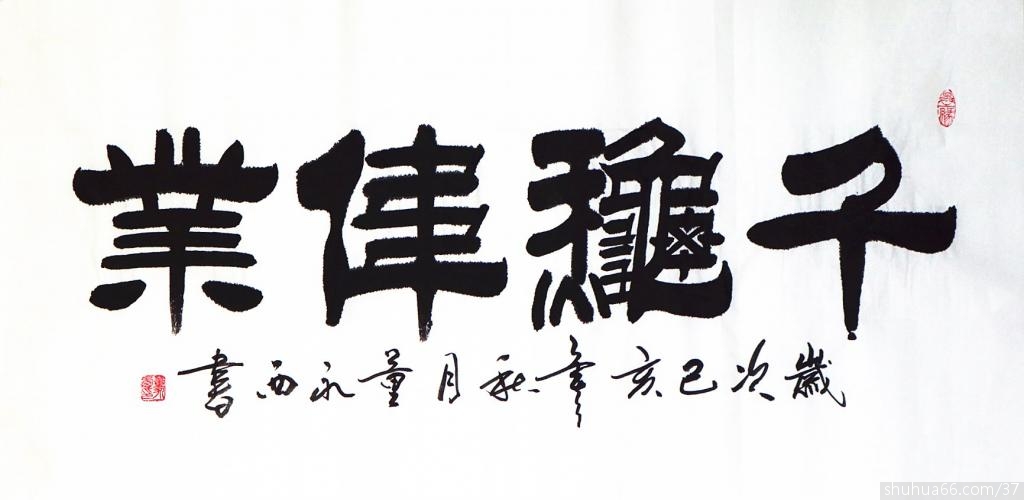 千龝偉業
歲次己亥年秋月董永西書
shuhua66.com/37